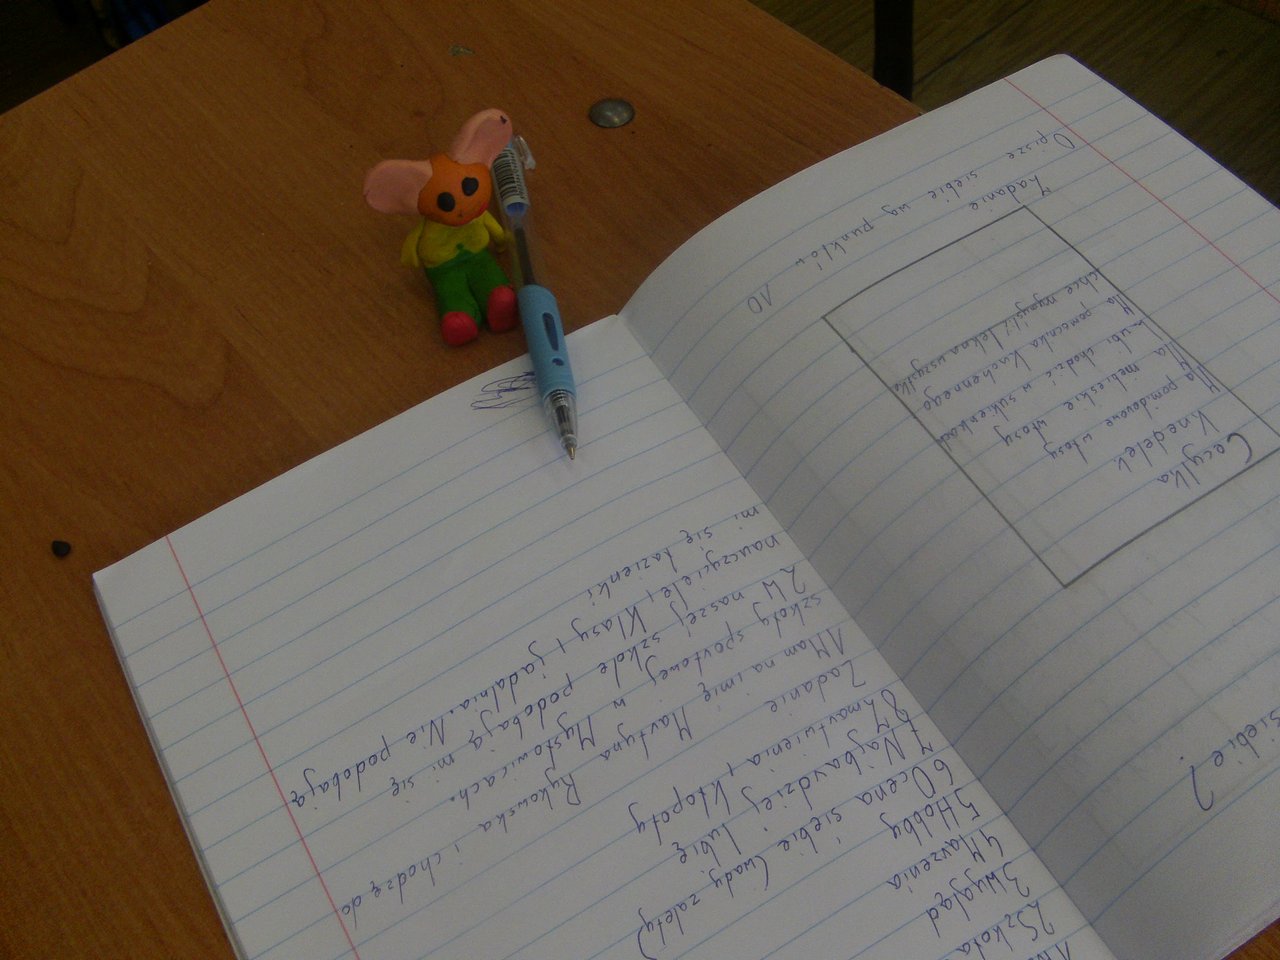 siebie?
Cecylka
Knedelek
Ma pomidorowe włosy
Ma niebieskie włosy
Lubi chodzić w sukienkach
Ma pomocnika kuchennego
chce wymyślić lek na wszystko
Zadanie
Opisze siebie wg punktów
10
2 Szkoła
3 Wygląd
4 Marzenia
5 Hobby
6 Ocena siebie (wady, zalety)
7 Najbardziej lubię
8 Zmartwienia, kłopoty
Zadanie
1 Mam na imię Martyna Rykowska i chodzę do
szkoły sportowej w Mysłowicach.
2 W naszej szkole podobają mi się
nauczyciele, klasy i jadalnia. Nie podobają
mi się łazienki